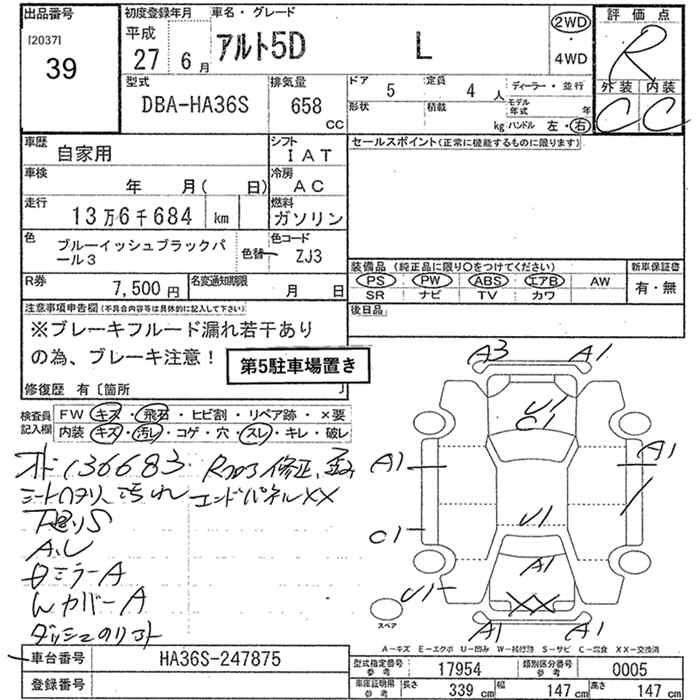 出品番号
[2037]
39
初度登録年月
平成
27 6月
車名・グレード
アルト5D L
2WD
・
4WD
評価点
R
外装 内装
C C
型式
DBA-HA36S
排気量
658
cc
ドア
5
定員
4 人
ディーラー・並行
形状
積載
kg
モデル年式
年
ハンドル 左・右
車歴
自家用
シフト
IAT
車検
年 月( 日)
冷房
AC
走行
13万6千684 km
燃料
ガソリン
色
ブルーイッシュブラックパール3
色替
色コード
ZJ3
R券
7,500 円
名変通知期限
月 日
セールスポイント(正常に機能するものに限ります)
装備品(純正品に限り○をつけてください)
PS PW ABS エアB AW
SR ナビ TV カワ
新車保証書
有・無
後日品
注意事項申告欄(不具合内容等は具体的に記入して下さい)
※ブレーキフルード漏れ若干あり
の為、ブレーキ注意!
第5駐車場置き
修復歴 有〔箇所 〕
検査員記入欄
FW キズ・飛石・ヒビ割・リペア跡・×要
内装 キズ・汚れ・コゲ・穴・スレ・キレ・破レ
136683
シートヘタリ、汚れ エンドパネルXX
下廻りS
Dミラー A
WカバーA
A3 A1
U1
C1
A1 A1
C1 U1
A1
U1
XX
スペア
A1 A1
A-キズ E-エクボ U-凹み W-補修跡 S-サビ C-腐食 XX-交換済
車台番号
HA36S-247875
登録番号
型式指定番号
参考
17954
類別区分番号
参考
0005
車庫証明用
参考
長さ 339 cm 幅 147 cm 高さ 147 cm